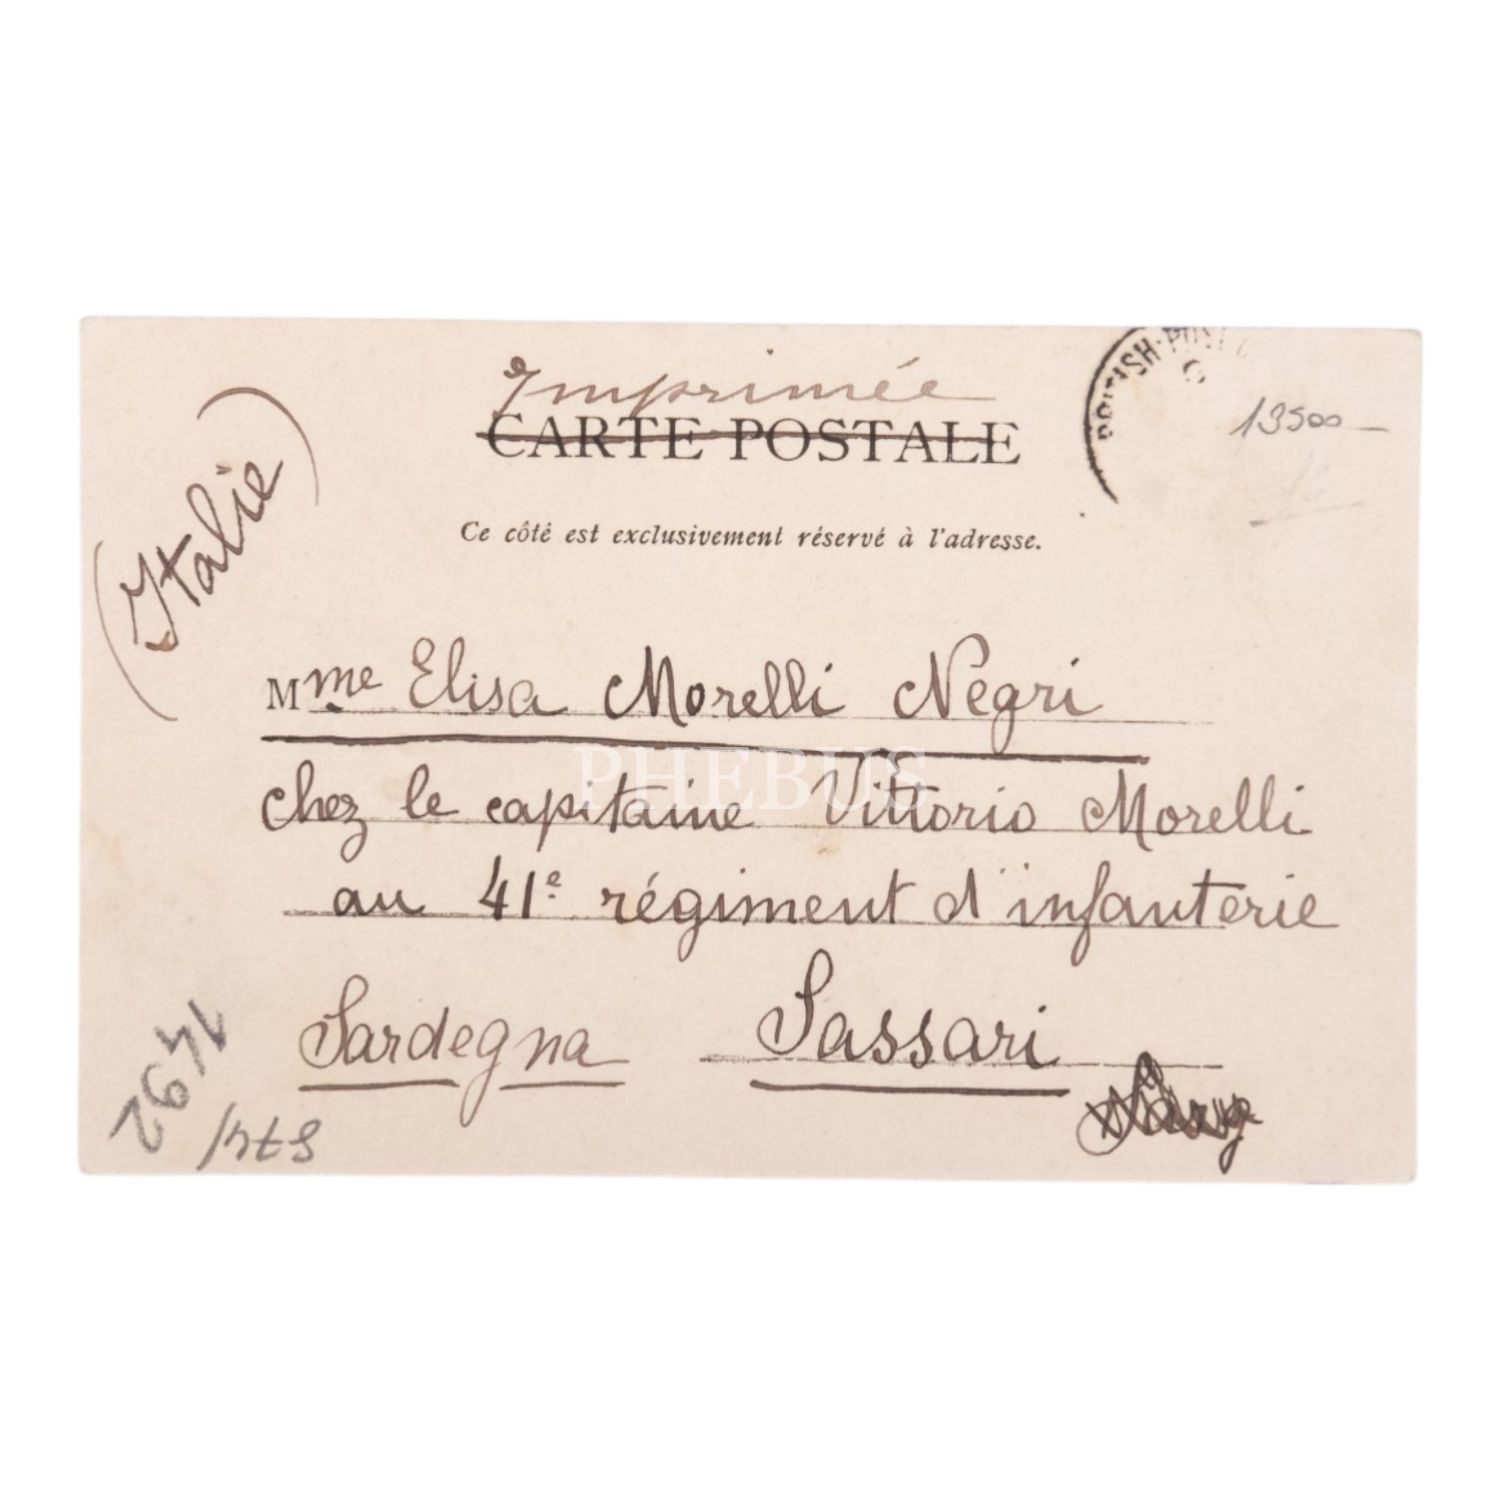 Imprimée
CARTE POSTALE
Ce côté est exclusivement réservé à l'adresse.
BRITISH·POST
13500
(Italie)
Mme Elisa Morelli Negri
chez le capitaine Vittorio Morelli
au 41e régiment d'infanterie
Sardegna Sassari
1492
574/
PHEBUS